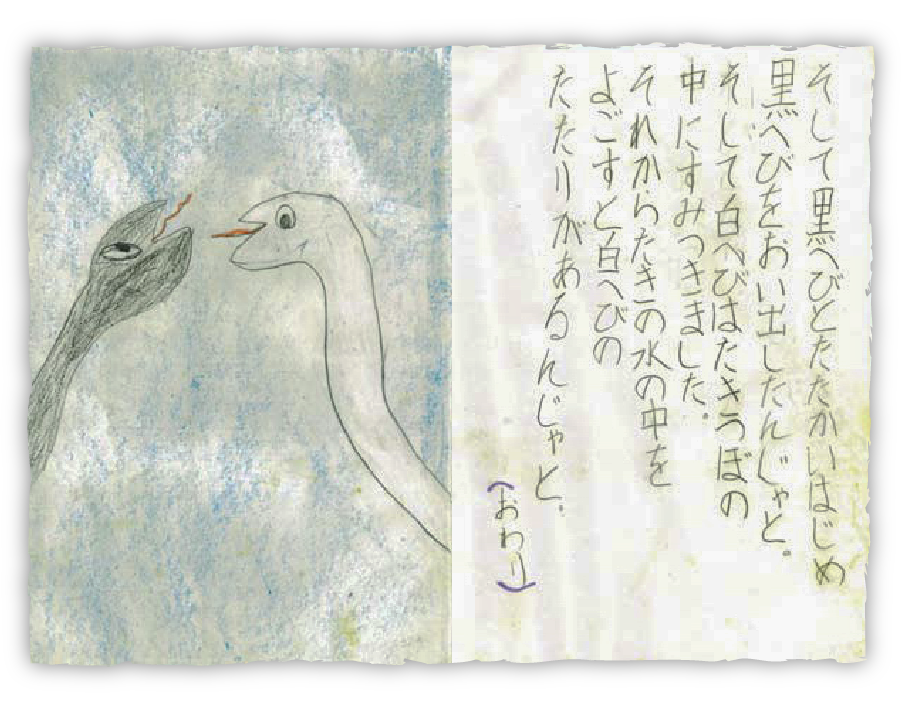 そして黒へびとたたかいはじめ
黒へびをおい出したんじゃと。
そして白へびはたきつぼの
中にすみつきました。
それからたきの水の中を
よごすと白へびの
たたりがあるんじゃと。
(おわり)